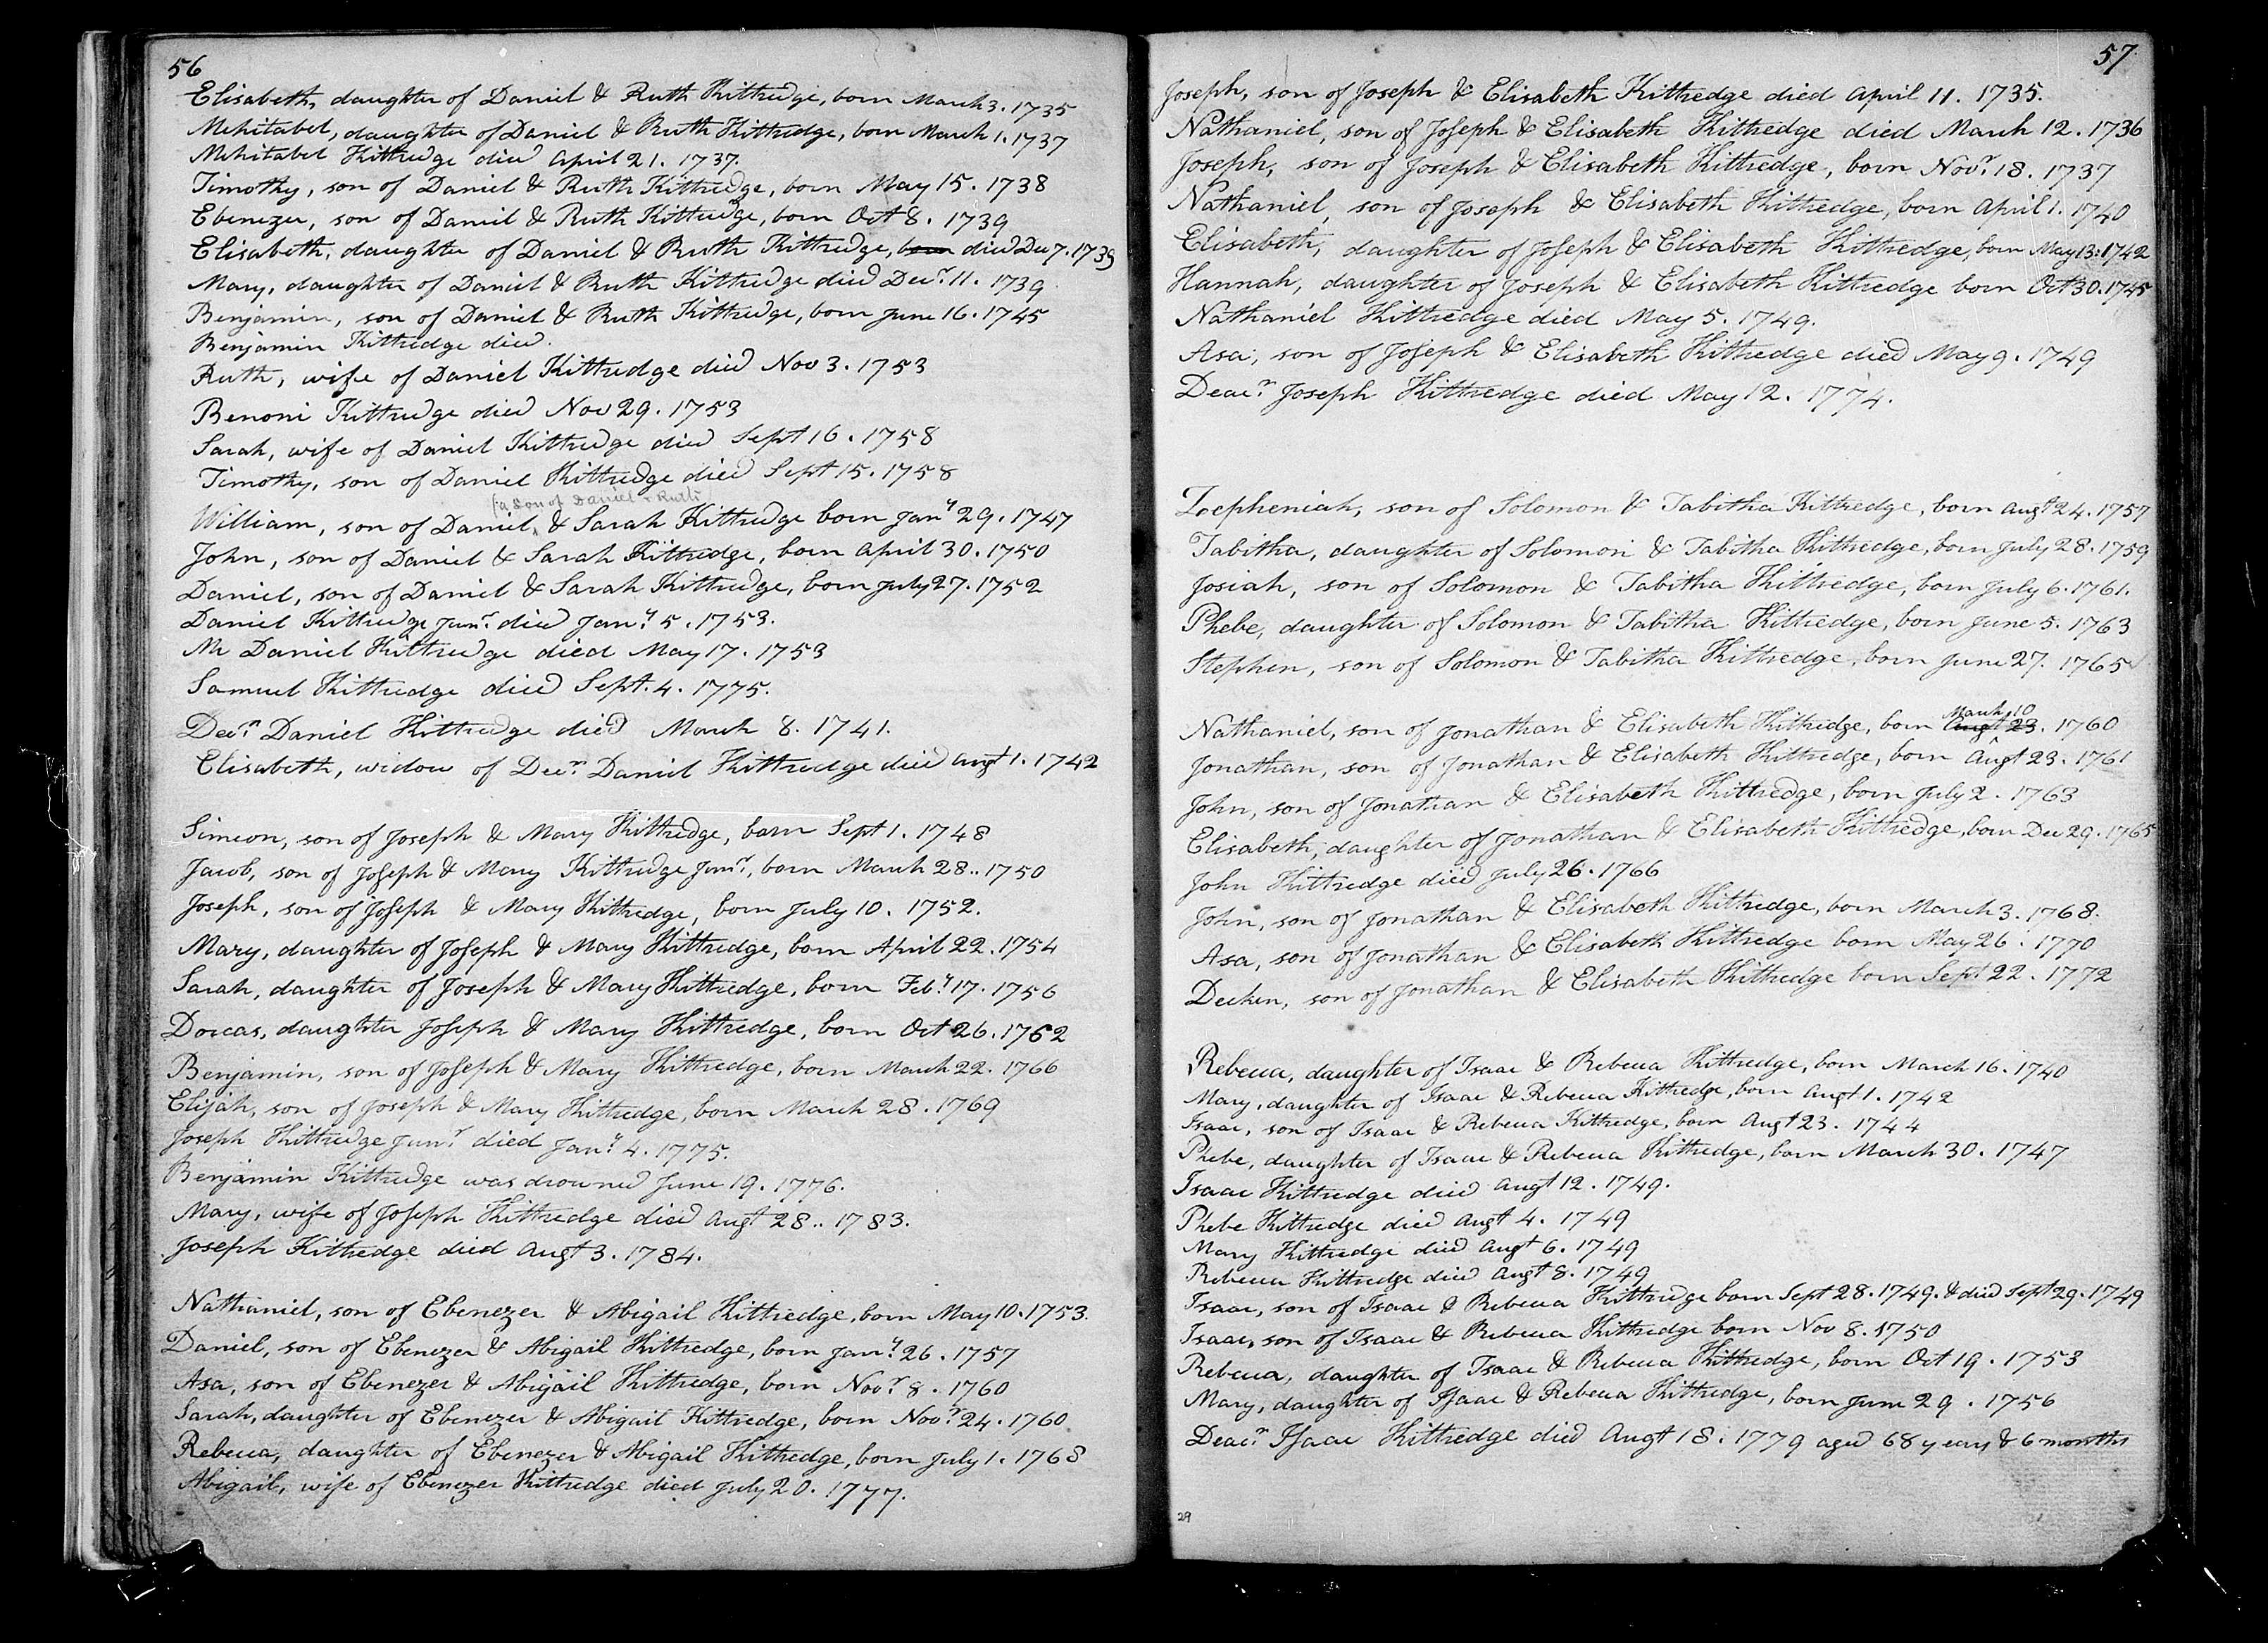 56
Elisabeth, daughter of Daniel & Ruth Kittredge, born March 3. 1735
Mehitabel, daughter of Daniel & Ruth Kittredge, born March 1. 1737
Mehitabel Kittredge died April 21. 1737.
Timothy, son of Daniel & Ruth Kittredge, born May 15. 1738
Ebenezer, son of Daniel & Ruth Kittredge, born Oct 8. 1739
Elisabeth, daughter of Daniel & Ruth Kittredge, born died Dec 7. 1739
Mary, daughter of Daniel & Ruth Kittredge died Decr. 11. 1739
Benjamin, son of Daniel & Ruth Kittredge, born June 16. 1745
Benjamin Kittredge died.
Ruth, wife of Daniel Kittredge died Nov 3. 1753
Benoni Kittredge died Nov 29. 1753
Sarah, wife of Daniel Kittredge died Sept 16. 1758
Timothy, son of Daniel Kittredge died Sept 15. 1758
(a son of Daniel & Ruth)
William, son of Daniel & Sarah Kittredge born Jany 29. 1747
John, son of Daniel & Sarah Kittredge, born April 30. 1750
Daniel, son of Daniel & Sarah Kittredge, born July 27. 1752
Daniel Kittredge Junr. died Jany. 5. 1753.
Mr Daniel Kittredge died May 17. 1753
Samuel Kittredge died Sept. 4. 1775.
Decn. Daniel Kittredge died March 8. 1741.
Elisabeth, widow of Decn. Daniel Kittredge died Augt 1. 1742
Simeon, son of Joseph & Mary Kittredge, born Sept 1. 1748
Jacob, son of Joseph & Mary Kittredge Junr., born March 28.. 1750
Joseph, son of Joseph & Mary Kittredge, born July 10. 1752.
Mary, daughter of Joseph & Mary Kittredge, born April 22. 1754
Sarah, daughter of Joseph & Mary Kittredge, born Feby. 17. 1756
Dorcas, daughter Joseph & Mary Kittredge, born Oct 26. 1762
Benjamin, son of Joseph & Mary Kittredge, born March 22. 1766
Elijah, son of Joseph & Mary Kittredge, born March 28. 1769
Joseph Kittredge Junr. died Jany. 4. 1775.
Benjamin Kittredge was drowned June 19. 1776.
Mary, wife of Joseph Kittredge died Augt 28.. 1783.
Joseph Kittredge died Augt 3. 1784.
Nathaniel, son of Ebenezer & Abigail Kittredge, born May 10. 1753.
Daniel, son of Ebenezer & Abigail Kittredge, born Jany. 26. 1757
Asa, son of Ebenezer & Abigail Kittredge, born Novr. 8. 1760
Sarah, daughter of Ebenezer & Abigail Kittredge, born Novr. 24. 1760
Rebecca, daughter of Ebenezer & Abigail Kittredge, born July 1. 1768
Abigail, wife of Ebenezer Kittredge died July 20. 1777.
57
Joseph, son of Joseph & Elisabeth Kittredge died April 11. 1735.
Nathaniel, son of Joseph & Elisabeth Kittredge died March 12. 1736
Joseph, son of Joseph & Elisabeth Kittredge, born Novr. 18. 1737
Nathaniel, son of Joseph & Elisabeth Kittredge, born April 1. 1740
Elisabeth, daughter of Joseph & Elisabeth Kittredge, born May 13. 1742
Hannah, daughter of Joseph & Elisabeth Kittredge born Oct 30. 1745
Nathaniel Kittredge died May 5. 1749.
Asa, son of Joseph & Elisabeth Kittredge died May 9. 1749
Deacn. Joseph Kittredge died May 12. 1774.
Zepheniah, son of Solomon & Tabitha Kittredge, born Augt 24. 1757
Tabitha, daughter of Solomon & Tabitha Kittredge, born July 28. 1759
Josiah, son of Solomon & Tabitha Kittredge, born July 6. 1761.
Phebe, daughter of Solomon & Tabitha Kittredge, born June 5. 1763
Stephen, son of Solomon & Tabitha Kittredge, born June 27. 1765
March 10
Nathaniel, son of Jonathan & Elisabeth Kittredge, born Augt 23. 1760
Jonathan, son of Jonathan & Elisabeth Kittredge, born Augt 23. 1761
John, son of Jonathan & Elisabeth Kittredge, born July 2. 1763
Elisabeth, daughter of Jonathan & Elisabeth Kittredge, born Dec 29. 1765
John Kittredge died July 26. 1766
John, son of Jonathan & Elisabeth Kittredge, born March 3. 1768.
Asa, son of Jonathan & Elisabeth Kittredge born May 26. 1770
son of Jonathan & Elisabeth Kittredge born Sept 22. 1772
Rebecca, daughter of Isaac & Rebecca Kittredge, born March 16. 1740
Mary, daughter of Isaac & Rebecca Kittredge, born Augt 1. 1742
Isaac, son of Isaac & Rebecca Kittredge, born Augt 23. 1744
Phebe, daughter of Isaac & Rebecca Kittredge, born March 30. 1747
Isaac Kittredge died Augt 12. 1749.
Phebe Kittredge died Augt 4. 1749
Mary Kittredge died Augt 6. 1749
Rebecca Kittredge died Augt 8. 1749
Isaac, son of Isaac & Rebecca Kittredge born Sept 28. 1749. & died Sept 29. 1749
Isaac, son of Isaac & Rebecca Kittredge born Nov 8. 1750
Rebecca, daughter of Isaac & Rebecca Kittredge, born Oct 19. 1753
Mary, daughter of Isaac & Rebecca Kittredge, born June 29. 1756
Deacn. Isaac Kittredge died Augt 18. 1779 aged 68 years & 6 months
29